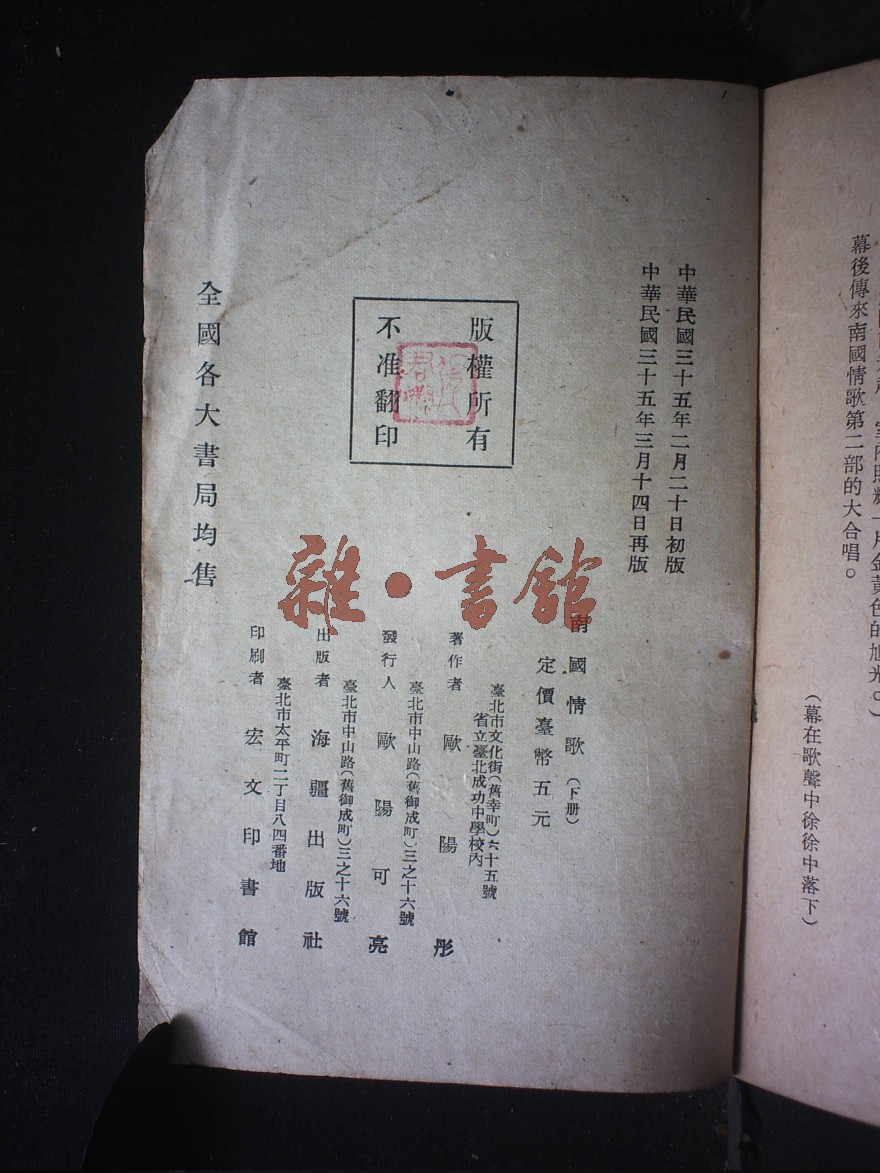 幕後傳來南國情歌第二部的大合唱。
（幕在歌聲中徐徐中落下）
中華民國三十五年二月二十日初版
中華民國三十五年三月十四日再版
版權所有
不准翻印
南國情歌（下册）
定價臺幣五元
臺北市文化街（舊幸町）六十五號
省立臺北成功中學校內
著作者 歐陽彤
臺北市中山路（舊御成町）三之十六號
發行人 歐陽可亮
臺北市中山路（舊御成町）三之十六號
出版者 海疆出版社
臺北市太平町二丁目八四番地
印刷者 宏文印書館
全國各大書局均售
雜·書館